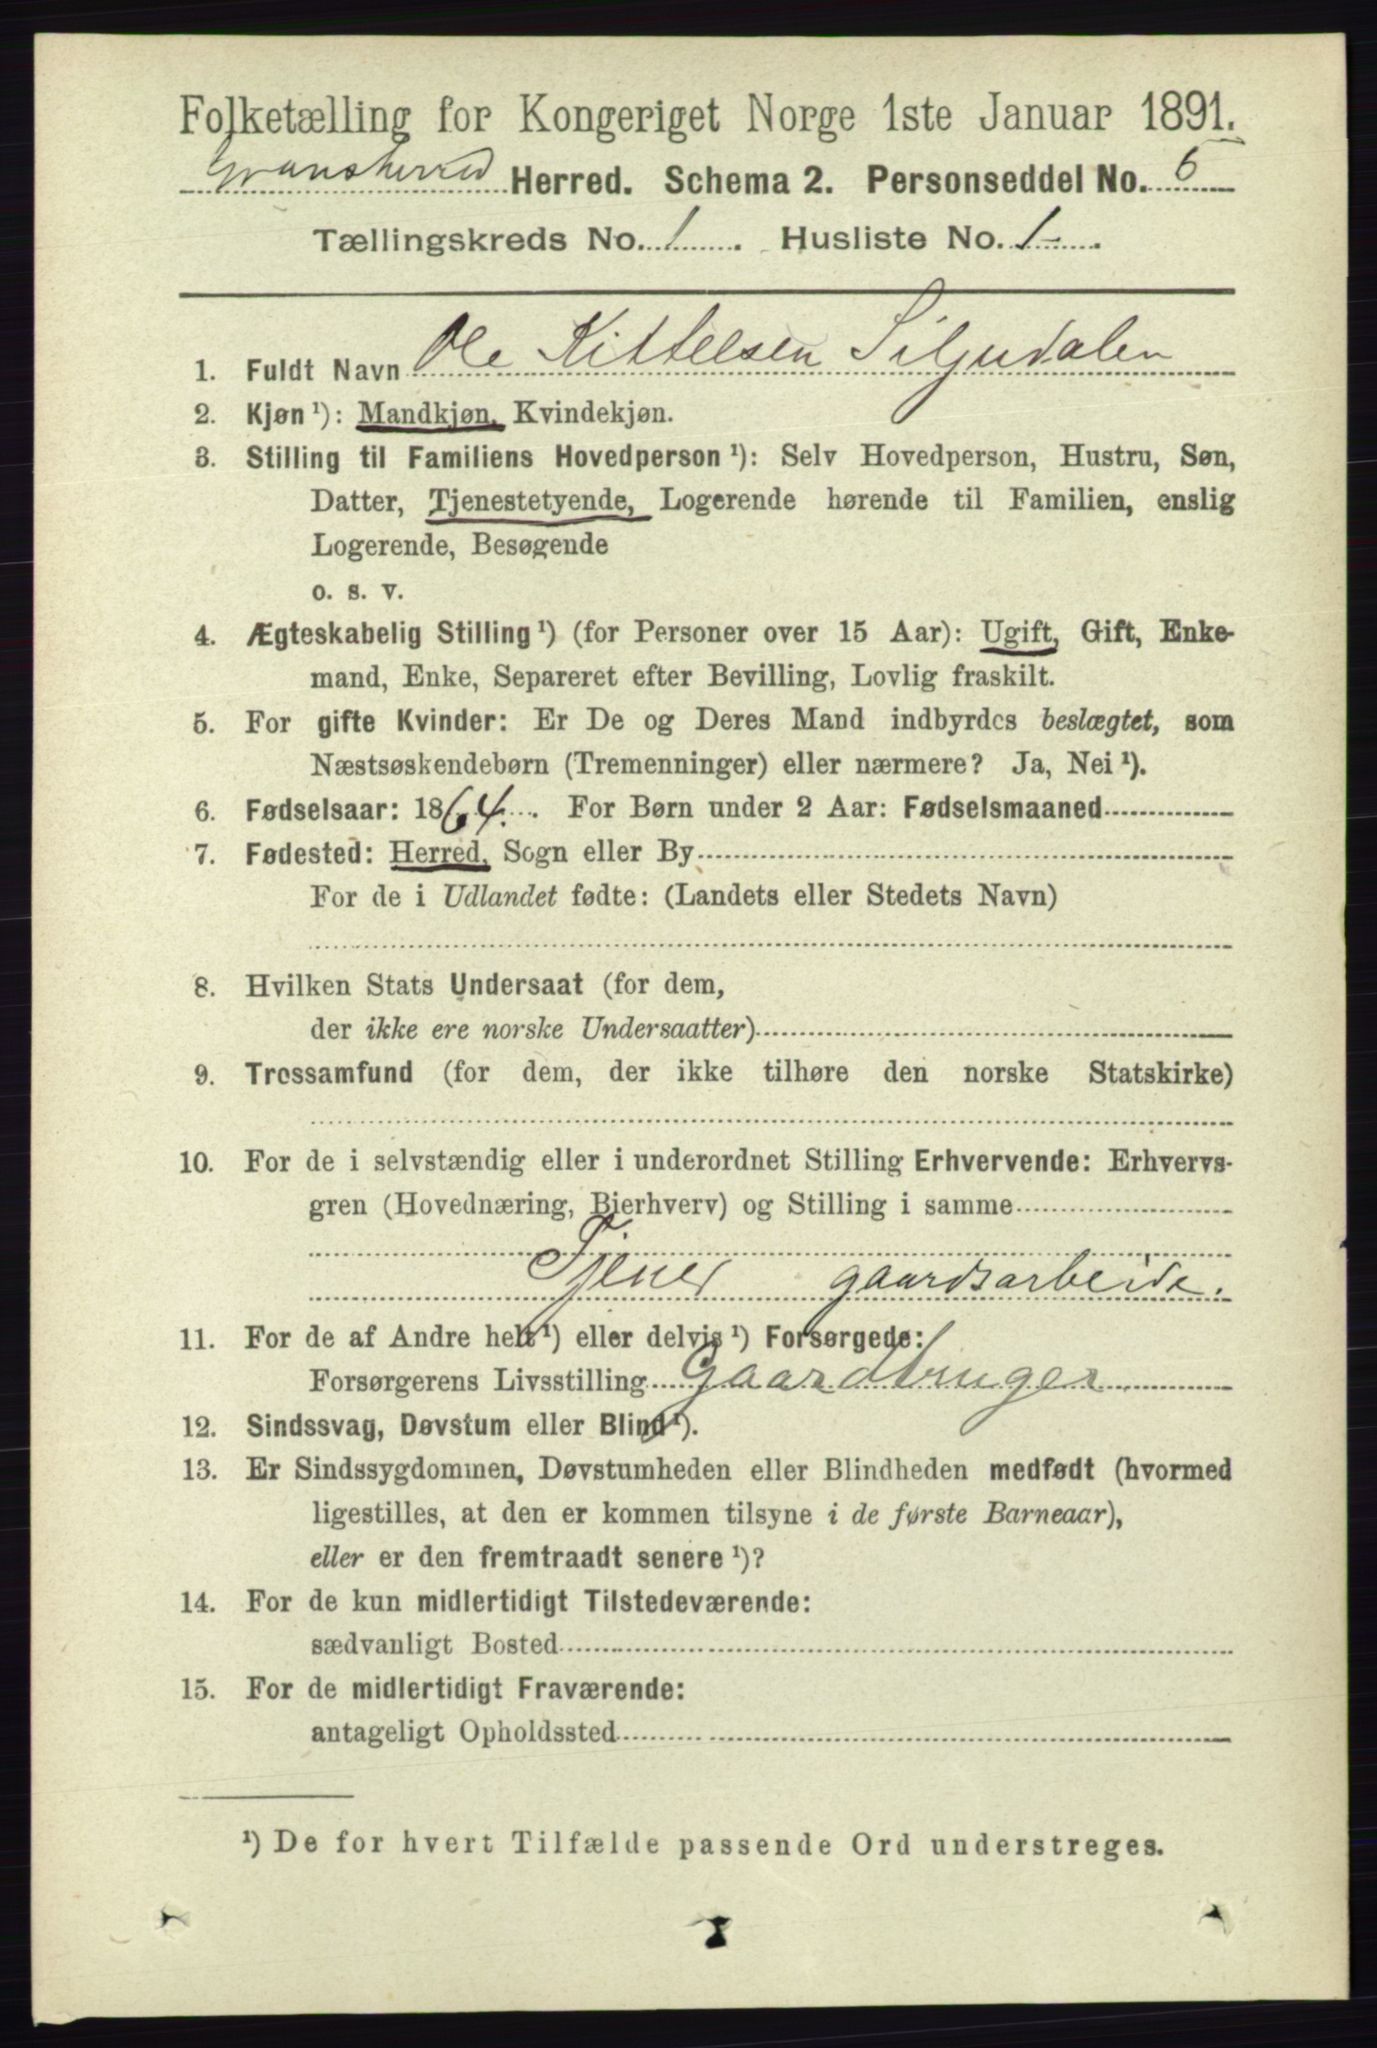 Folketælling for Kongeriget Norge 1ste Januar 1891.
Gransherred Herred. Schema 2. Personseddel No. 6
Tællingskreds No. 1. Husliste No. 1-.
1. Fuldt Navn Ole Kittelsen Siljudalen
2. Kjøn ¹): Mandkjøn, Kvindekjøn.
3. Stilling til Familiens Hovedperson ¹): Selv Hovedperson, Hustru, Søn,
Datter, Tjenestetyende, Logerende hørende til Familien, enslig
Logerende, Besøgende
o. s. v.
4. Ægteskabelig Stilling ¹) (for Personer over 15 Aar): Ugift, Gift, Enke-
mand, Enke, Separeret efter Bevilling, Lovlig fraskilt.
5. For gifte Kvinder: Er De og Deres Mand indbyrdes beslægtet, som
Næstsøskendebørn (Tremenninger) eller nærmere? Ja, Nei ¹).
6. Fødselsaar: 1864. For Børn under 2 Aar: Fødselsmaaned
7. Fødested: Herred, Sogn eller By
For de i Udlandet fødte: (Landets eller Stedets Navn)
8. Hvilken Stats Undersaat (for dem,
der ikke ere norske Undersaatter)
9. Trossamfund (for dem, der ikke tilhøre den norske Statskirke)
10. For de i selvstændig eller i underordnet Stilling Erhvervende: Erhvervs-
gren (Hovednæring, Bierhverv) og Stilling i samme
Tjener gaardsarbeide.
11. For de af Andre helt ¹) eller delvis ¹) Forsørgede:
Forsørgerens Livsstilling Gaardbruger
12. Sindssvag, Døvstum eller Blind ¹).
13. Er Sindssygdommen, Døvstumheden eller Blindheden medfødt (hvormed
ligestilles, at den er kommen tilsyne i de første Barneaar),
eller er den fremtraadt senere ¹)?
14. For de kun midlertidigt Tilstedeværende:
sædvanligt Bosted
15. For de midlertidigt Fraværende:
antageligt Opholdssted
¹) De for hvert Tilfælde passende Ord understreges.